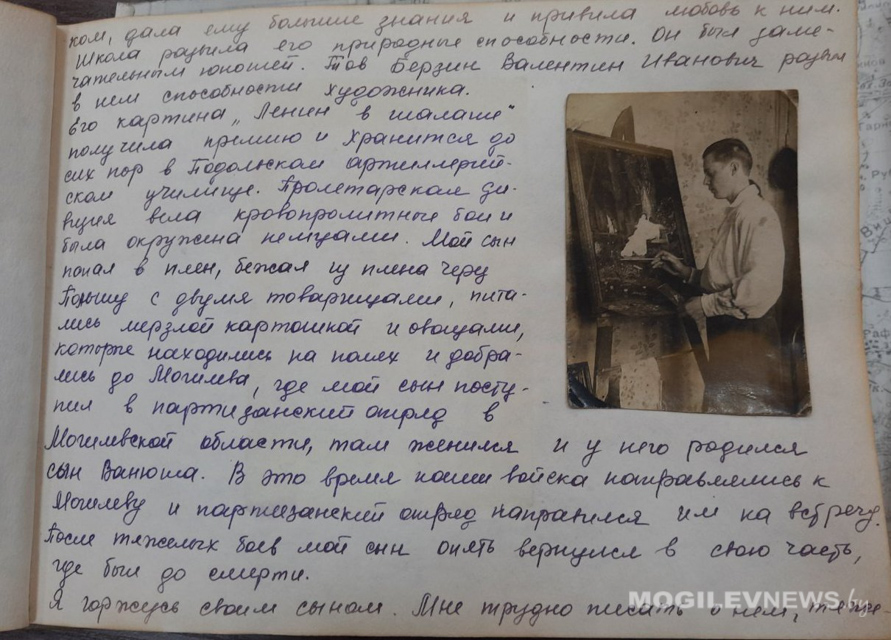 ком, дала ему большие знания и привила любовь к ним.
Школа развила его природные способности. Он был заме-
чательным юношей. Тов Берзин Валентин Иванович развил
в нем способности художника.
Его картина „Ленин в шалаше"
получила премию и хранится до
сих пор в Подольском артиллерий-
ском училище. Пролетарская ди-
визия вела кровопролитные бои и
была окружена немцами. Мой сын
попал в плен, бежал из плена через
Польшу с двумя товарищами, пита-
лись мерзлой картошкой и овощами,
которые находились на полях и добра-
лись до Могилева, где мой сын посту-
пил в партизанский отряд в
Могилевской области, там женился и у него родился
сын Ванюша. В это время наши войска направлялись к
Могилеву и партизанский отряд направился им на встречу.
После тяжелых боев мой сын опять вернулся в свою часть,
где был до смерти.
Я горжусь своим сыном. Мне трудно писать о нем,
MOGILEVNEWS.by